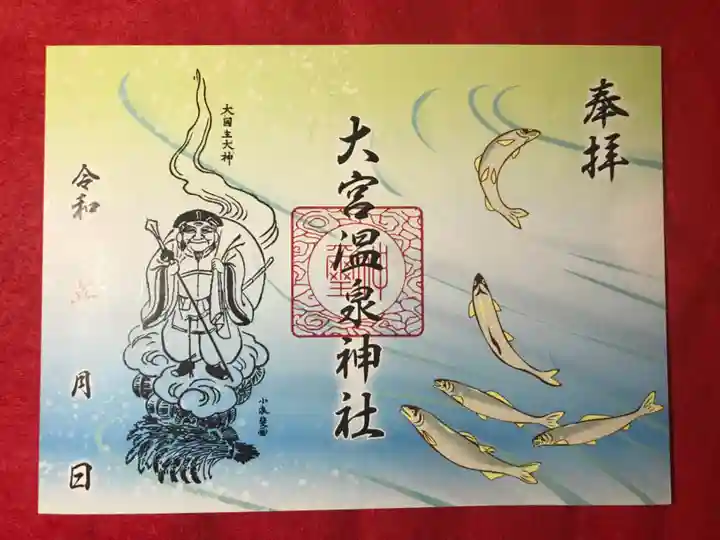 奉拝
大宮温泉神社
大国主大神
令和
月
日